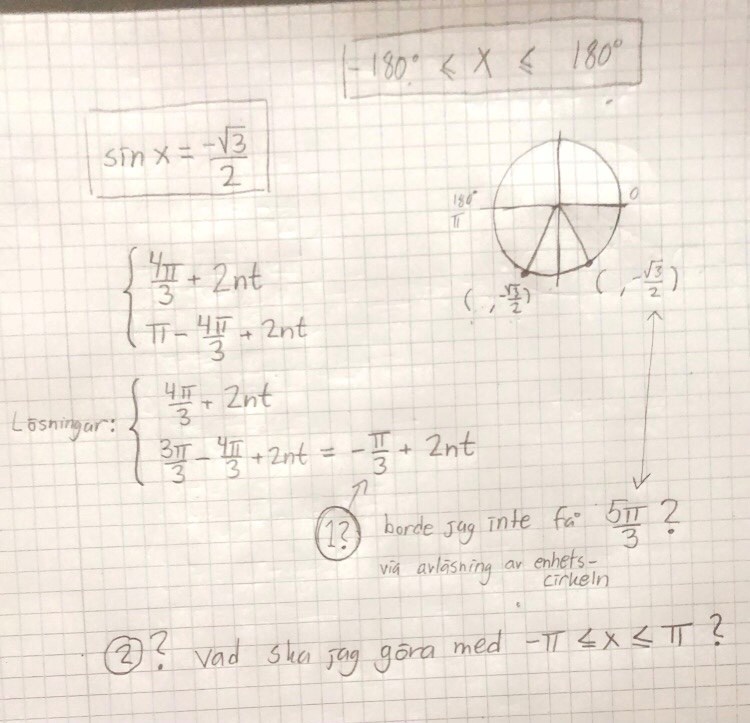 -180° ≤ x ≤ 180°
sin x = -√3/2
180°
π
0
( , -√3/2)
( , -√3/2)
4π/3 + 2nt
π - 4π/3 + 2nt
Lösningar:
4π/3 + 2nt
3π/3 - 4π/3 + 2nt = -π/3 + 2nt
1? borde jag inte få 5π/3 ?
via avläsning av enhets-
cirkeln
2 ? vad ska jag göra med -π ≤ x ≤ π ?